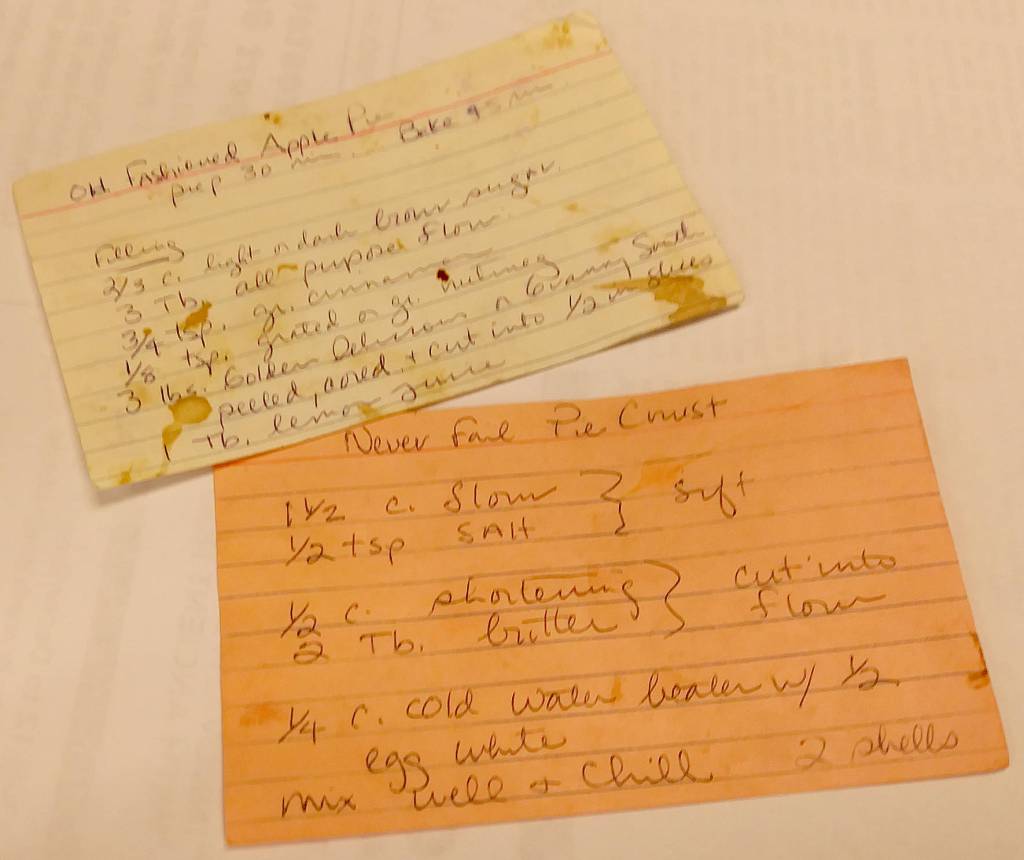 Old Fashioned Apple Pie
prep 30 min. Bake 45 min
Filling
2/3 c. light or dark brown sugar.
3 Tb. all purpose flour
3/4 tsp. gr. cinnamon
1/8 tsp. grated or gr. nutmeg
3 lbs. Golden Delicious or Granny Smith
peeled, cored, + cut into 1/2 in slices
1 Tb. lemon juice
Never Fail Pie Crust
1 1/2 c. flour } sift
1/2 tsp SAlt
1/2 c. shortening } cut into
2 Tb. butter flour
1/4 c. cold water beaten w/ 1/2
egg white
mix well + Chill 2 shells